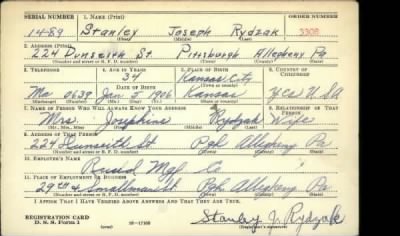 SERIAL NUMBER 1. NAME (Print) ORDER NUMBER
14-89 Stanley Joseph Rydzak 3308
(First) (Middle) (Last)
2. ADDRESS (Print)
224 Dunseith St. Pittsburgh Allegheny Pa
(Number and street or R. F. D. number) (Town) (County) (State)
3. TELEPHONE 4. AGE IN YEARS 5. PLACE OF BIRTH 6. COUNTRY OF CITIZENSHIP
34 Kansas City
Ma 0639 Jan 5 1906 Kansas Yes USA
7. NAME OF PERSON WHO WILL ALWAYS KNOW YOUR ADDRESS 8. RELATIONSHIP OF THAT PERSON
Mrs. Josephine Rydzak Wife
(Mr., Mrs., Miss) (First) (Middle) (Last)
9. ADDRESS OF THAT PERSON
224 Dunseith St Pgh Allegheny Pa.
(Number and street or R. F. D. number) (Town) (County) (State)
10. EMPLOYER'S NAME
Mfg Co
11. PLACE OF EMPLOYMENT OR BUSINESS
29th & Smallman St. Pgh Allegheny Pa.
(Number and street or R. F. D. number) (Town) (County) (State)
I AFFIRM THAT I HAVE VERIFIED ABOVE ANSWERS AND THAT THEY ARE TRUE.
REGISTRATION CARD
D. S. S. Form 1 (over) 16-17105 Stanley J. Rydzak